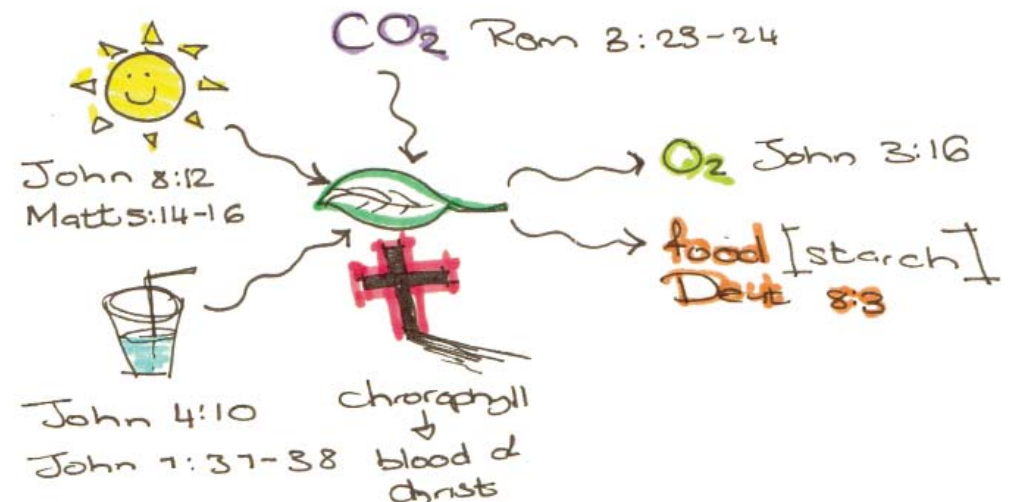 CO2 Rom 3:23-24
John 8:12
Matt 5:14-16
O2 John 3:16
food [starch]
Deut 8:3
John 4:10
John 7:37-38
chrorophyll
blood of
christs